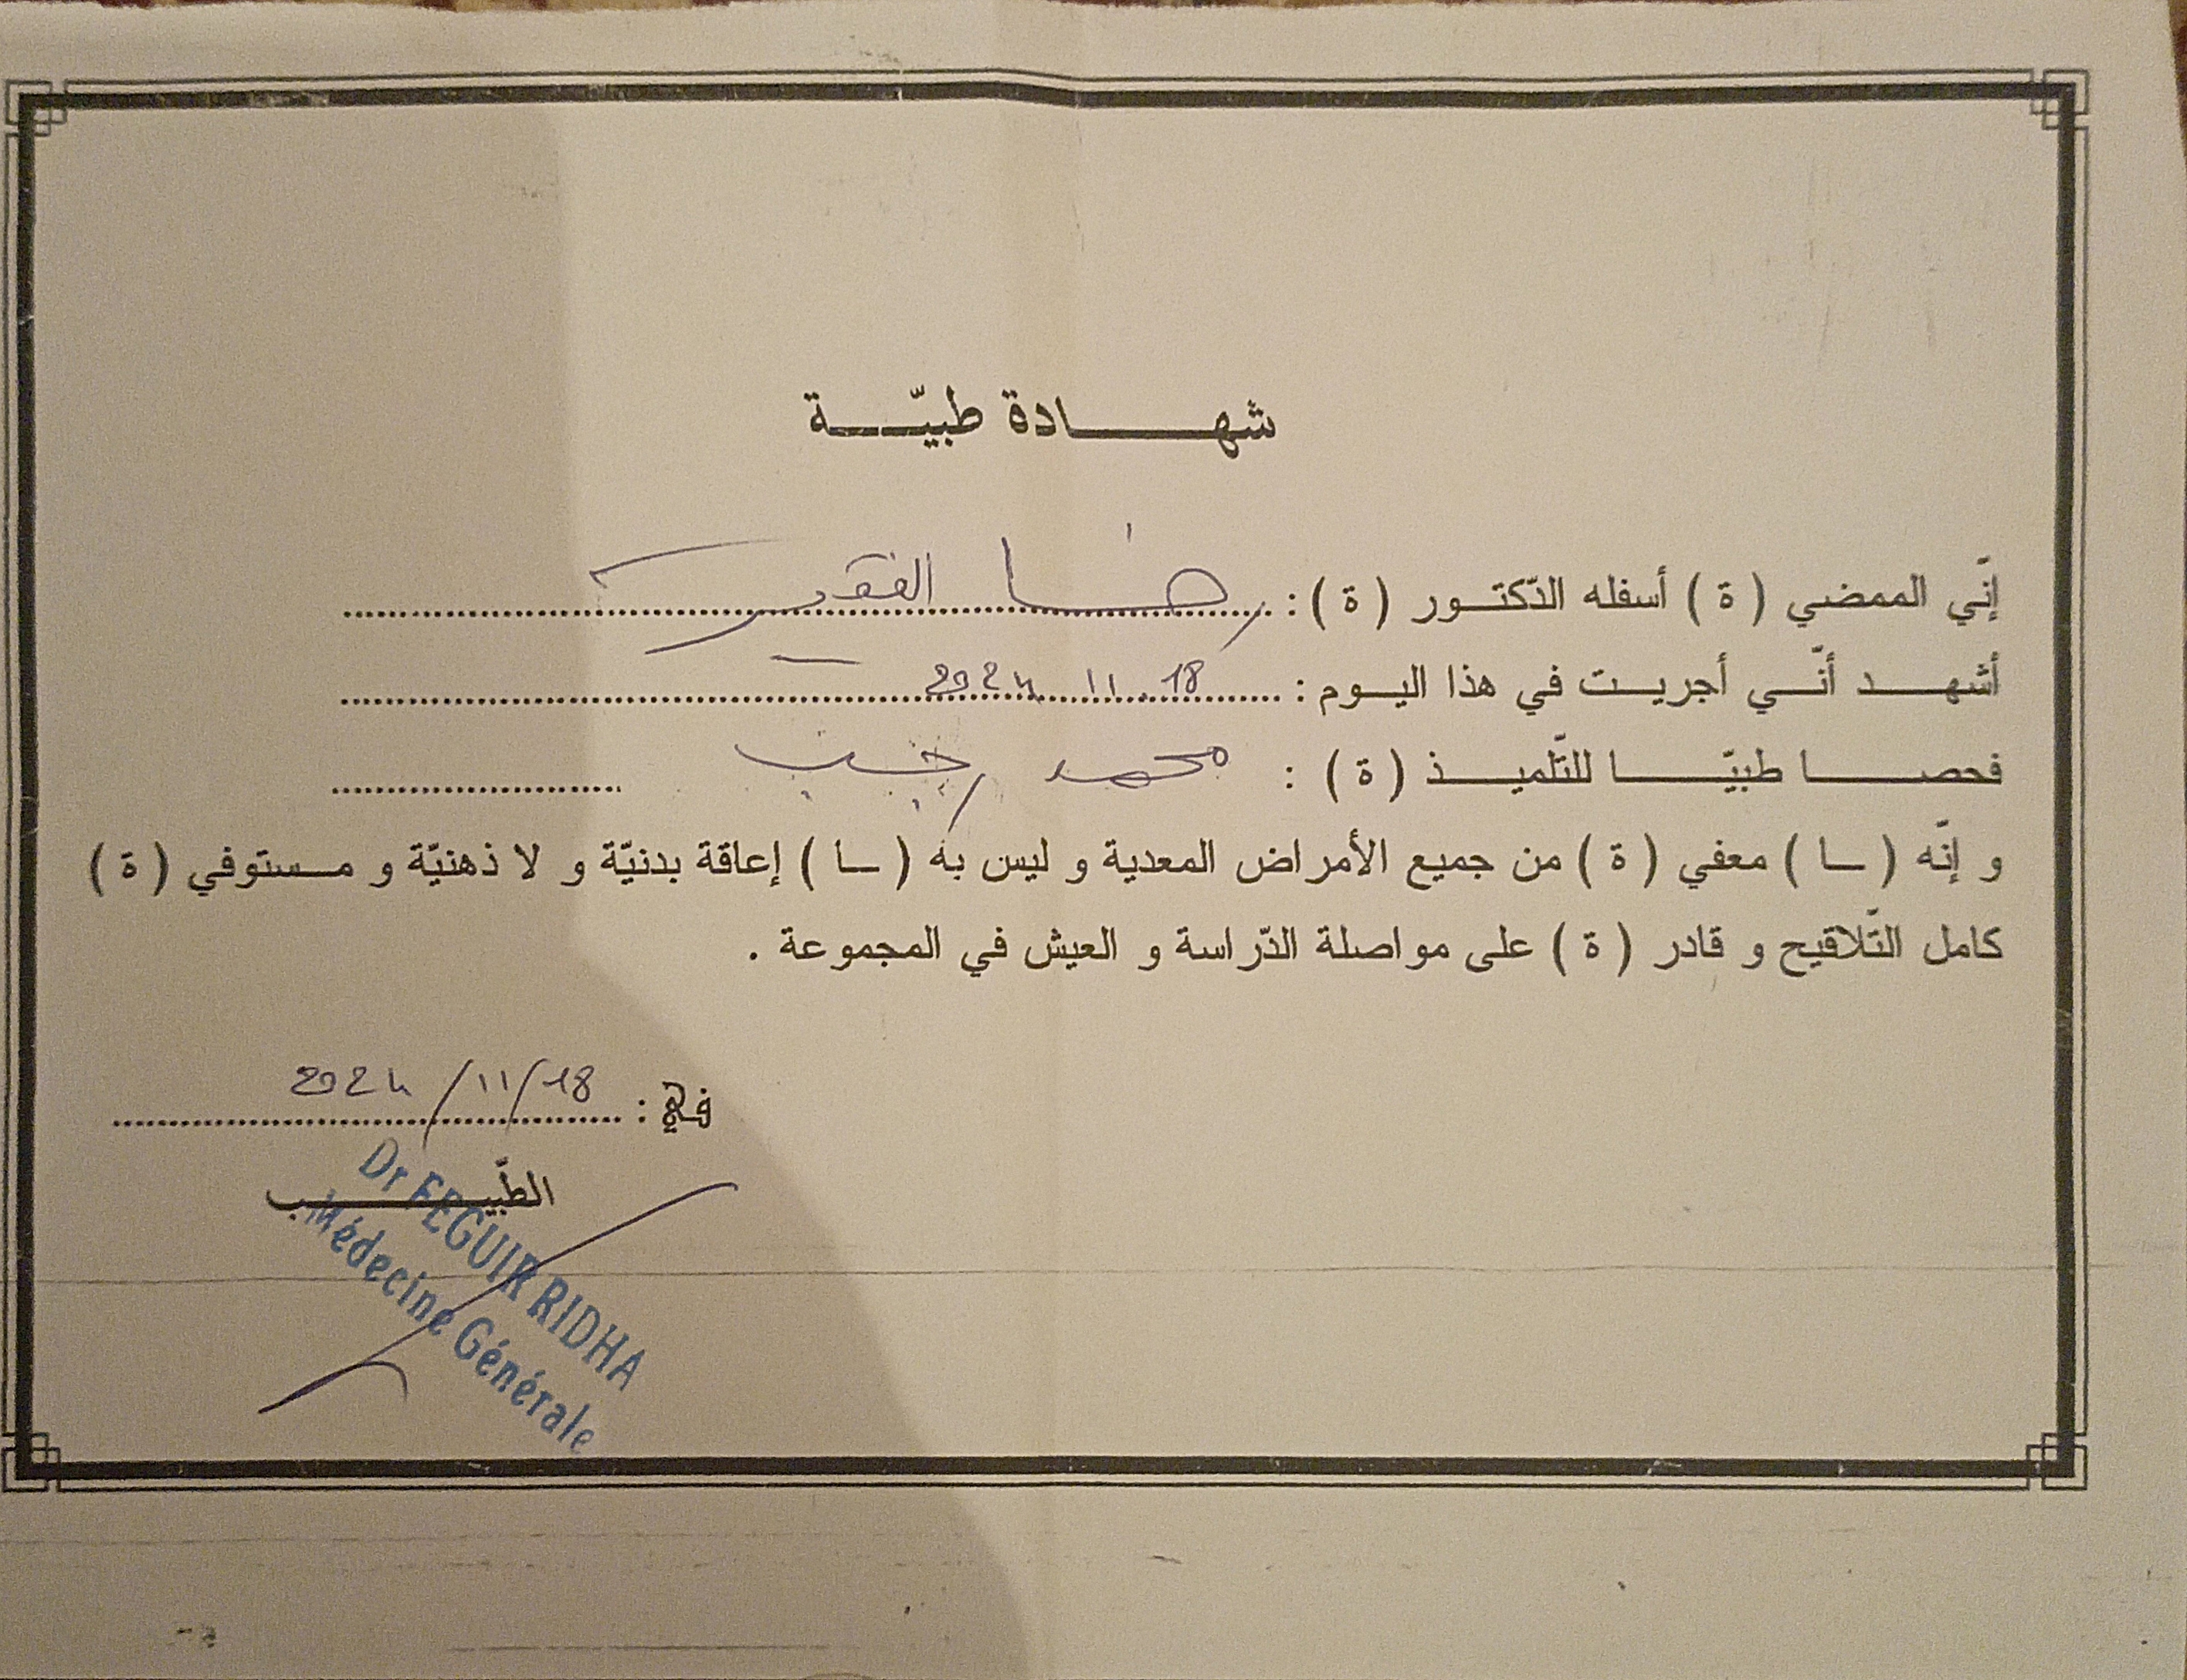 شهادة طبيّة
إنّي الممضي ( ة ) أسفله الدّكتور ( ة ) : رضا الفقير
أشهد أنّي أجريت في هذا اليوم : 18 11 2024
فحصا طبيّا للتّلميذ ( ة ) : محمد رجب
و إنّه ( ـا ) معفي ( ة ) من جميع الأمراض المعدية و ليس به ( ـا ) إعاقة بدنيّة و لا ذهنيّة و مستوفي ( ة )
كامل التّلاقيح و قادر ( ة ) على مواصلة الدّراسة و العيش في المجموعة .
في : 18/11/2024
الطّبيب
Dr FEGUIR RIDHA
Médecine Générale